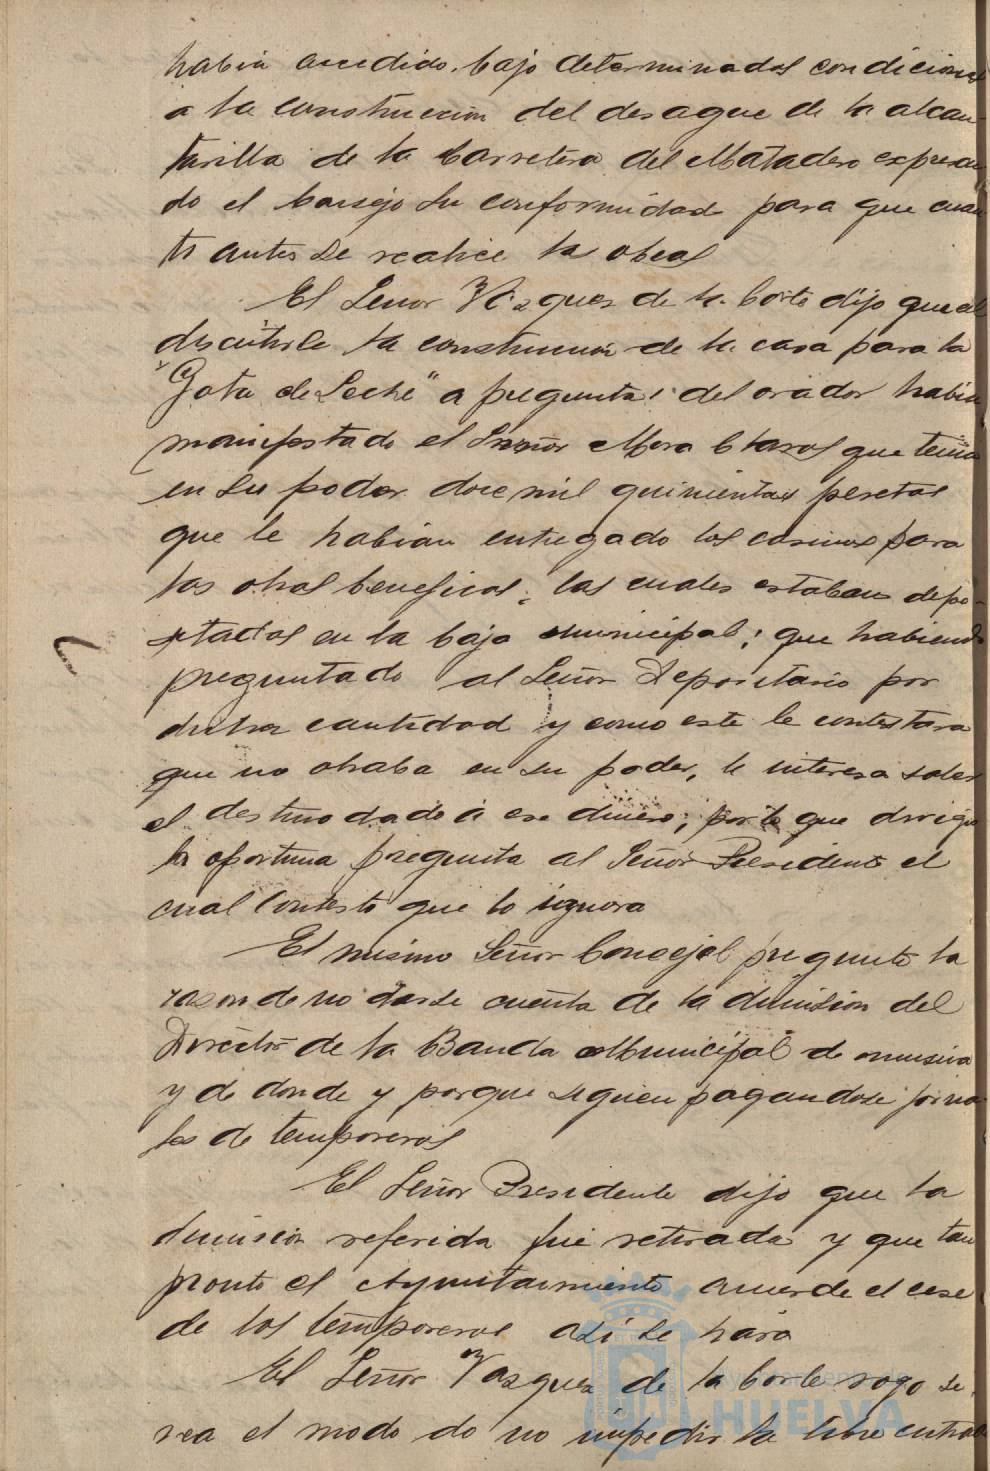 había accedido bajo determinadas condiciones
a la construccion del desague de la alcan-
tarilla de la Carretera del Matadero expresan
do el Consejo su conformidad para que cuan
to antes se realice las obras
El Señor Vazquez de la Corte dijo que al
discutirse la construccion de la casa para la
"Gota de Leche" a pregunta del orador había
manifestado el Señor Mora Claros que tenia
en su poder doce mil quinientas pesetas
que le habian entregado los casinos para
las obras beneficas, las cuales estaban depo-
sitadas en la Caja municipal; que habiendo
preguntado al Señor Depositario por
dicha cantidad y como este le contestara
que no obraba en su poder, le interesa saber
el destino dado á ese dinero; por lo que dirigió
la oportuna pregunta al Señor Presidente el
cual contestó que lo ignora
El mismo Señor Concejal preguntó la
razon de no darse cuenta de la dimision del
Director de la Banda Municipal de musica
y de donde y porque siguen pagandose jorna
les de temporeros
El Señor Presidente dijo que la
dimision referida fué retirada y que tan
pronto el Ayuntamiento acuerde el cese
de los temporeros así se hará
El Señor Vazquez de la Corte rogo se
vea el modo de no impedir la libre entrada
Ayuntamiento de
HUELVA